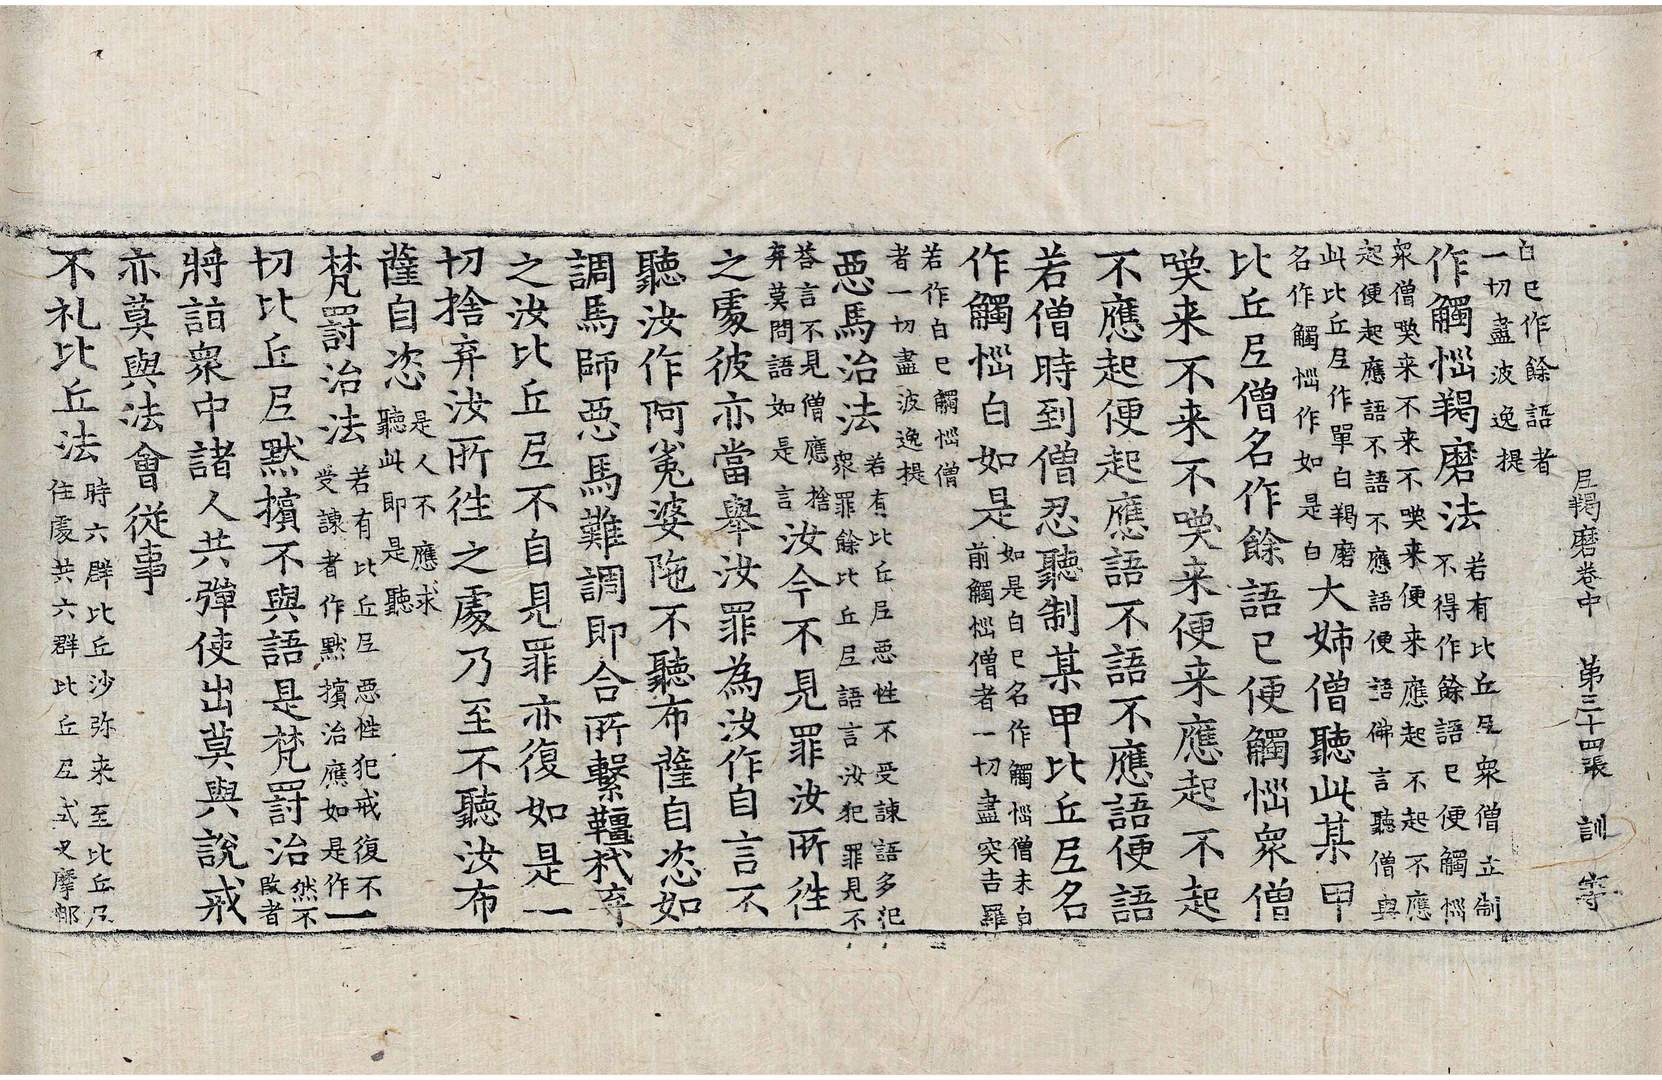 尼羯磨卷中 第三十四張 訓 字
白已作餘語者
一切盡波逸提
作觸惱羯磨法 若有比丘尼眾僧立制
不得作餘語已便觸惱
眾僧喚来不来不喚来便来應起不起不應
起便起應語不語不應語便語佛言聽僧與
此比丘尼作單白羯磨
名作觸惱作如是白 大姊僧聽此某甲
比丘尼僧名作餘語已便觸惱眾僧
喚来不来不喚来便来應起不起
不應起便起應語不語不應語便語
若僧時到僧忍聽制某甲比丘尼名
作觸惱白如是 如是白已名作觸惱僧未白
前觸惱僧者一切盡突吉羅
若作白已觸惱僧
者一切盡波逸提
惡馬治法 若有比丘尼惡性不受諫語多犯
眾罪餘比丘尼語言汝犯罪見不
荅言不見僧應捨
弃莫問語如是言 汝今不見罪汝所徃
之處彼亦當舉汝罪為汝作自言不
聽汝作阿㝹婆陁不聽布薩自恣如
調馬師惡馬難調即合所繫韁杙弃
之汝比丘尼不自見罪亦復如是一
切捨弃汝所徃之處乃至不聽汝布
薩自恣 是人不應求
聽此即是聽
梵罰治法 若有比丘尼惡性犯戒復不
受諫者作默擯治應如是作 一
切比丘尼默擯不與語是梵罰治 然不
改者
將詣眾中諸人共彈使出莫與說戒
亦莫與法會従事
不礼比丘法 時六群比丘沙弥来至比丘尼
住處共六群比丘尼式叉摩那